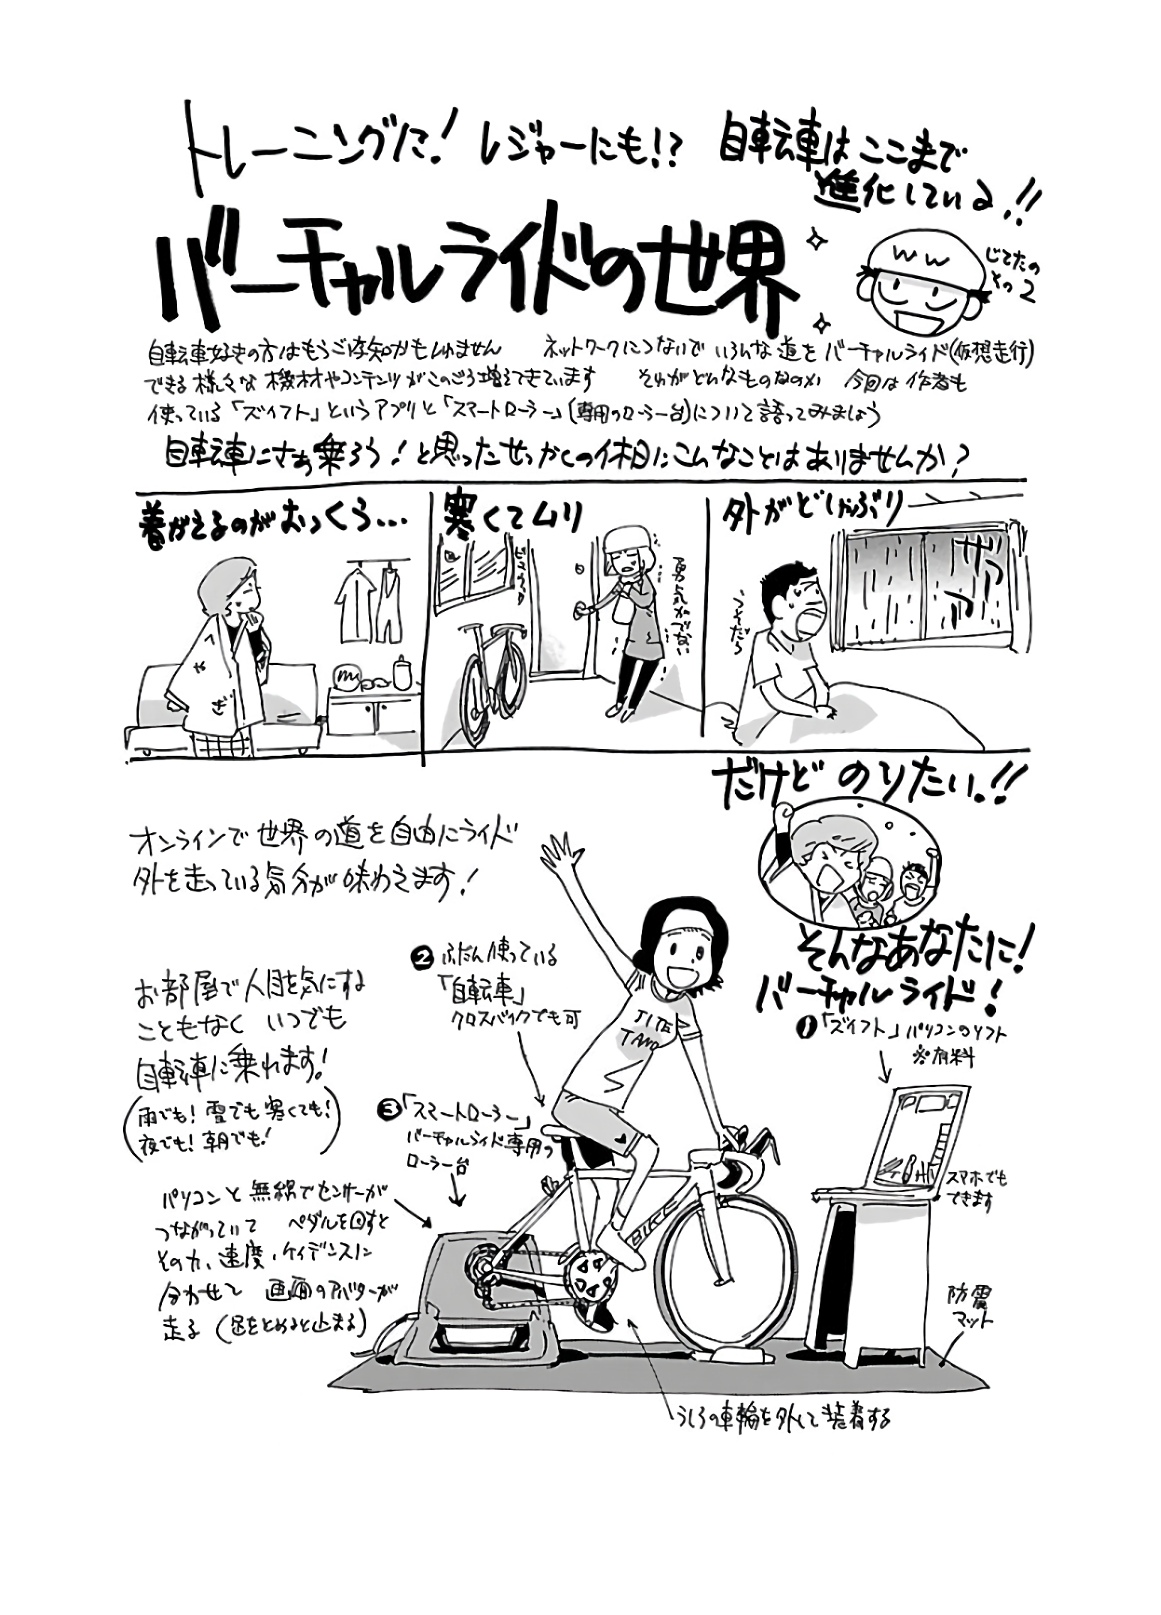 トレーニングに! レジャーにも!? 自転車はここまで
進化している!!
バーチャルライドの世界
じてたの
その2
自転車好きの方はもうご存知かもしれません ネットワークにつないで いろんな道を バーチャルライド(仮想走行)
できる様々な機材やコンテンツがこのごろ増えてきています それがどんなものなのか 今回は作者も
使っている「ズイフト」というアプリと「スマートローラー」(専用のローラー台)について語ってみましょう
自転車にさあ乗ろう!と思ったせっかくの休日にこんなことはありませんか?
着がえるのがおっくう…
やぎ
寒くてムリ
勇気がでない
外がどしゃぶり
ザアアア
うそだろ
だけど のりたい!!
オンラインで世界の道を自由にライド
外を走っている気分が味わえます!
そんなあなたに!
バーチャルライド!
❶「ズイフト」パソコンのソフト
※有料
❷ふだん使っている
「自転車」
クロスバイクでも可
お部屋で人目を気にする
こともなく いつでも
自転車に乗れます!
(雨でも!雪でも寒くても!
夜でも!朝でも!)
JITE
TANO
❸「スマートローラー」
バーチャルライド専用の
ローラー台
スマホでも
できます
パソコンと無線でセンサーが
つながっていて ペダルを回すと
その力、速度、ケイデンスに
合わせて 画面のアバターが
走る (足をとめると止まる)
BIKE
防震
マット
うしろの車輪を外して装着する